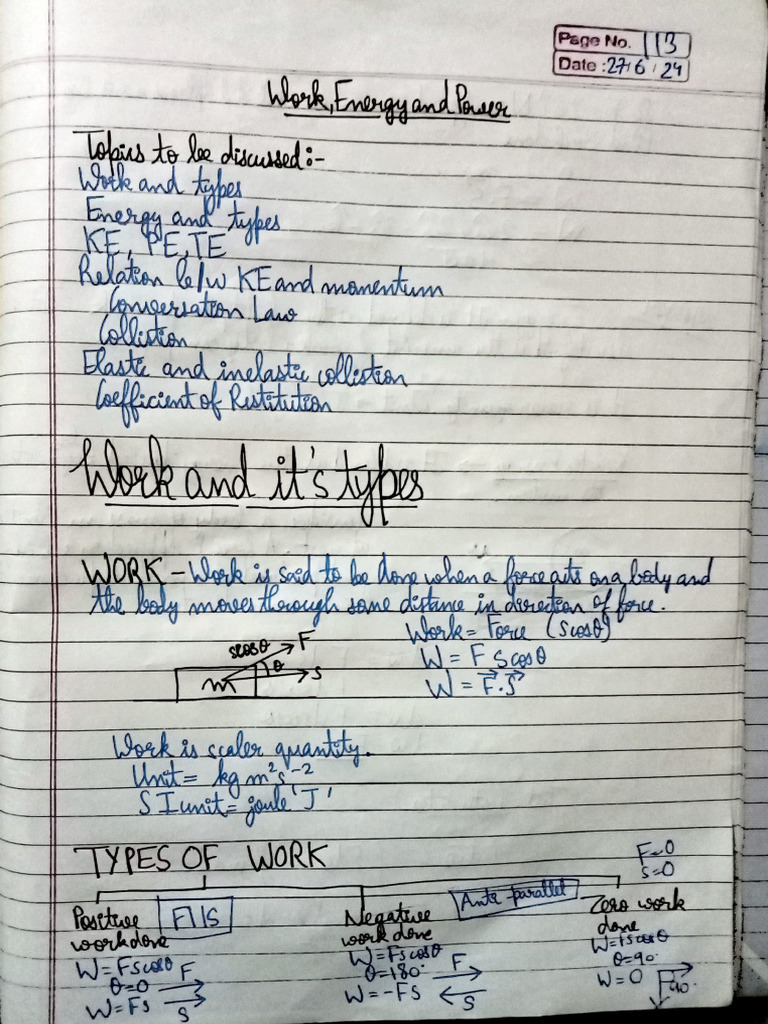 Page No. 113
Date : 27/6/24
Work, Energy and Power
Topics to be discussed:-
Work and types
Energy and types
KE, PE, TE
Relation b/w KE and momentum
Conversation Law
Collistion
Elastic and inelastic collistion
Coefficient of Restitution
Work and it's types
WORK - Work is said to be done when a force acts on a body and
the body moves through some distance in direction of force.
Work = Force (s cosθ)
W = F s cosθ
W = F⃗.s⃗
s cosθ F
θ
m s
Work is scaler quantity.
Unit = kg m²s⁻²
SI unit = joule 'J'
TYPES OF WORK
F=0
s=0
Positive work done
F||S
W = Fs cosθ
θ=0 F
W = Fs S
Negative work done
Anti parallel
W = Fs cosθ
θ=180° F
W = -Fs S
Zero work done
W = Fs cosθ
θ=90°
W = 0 F 90°